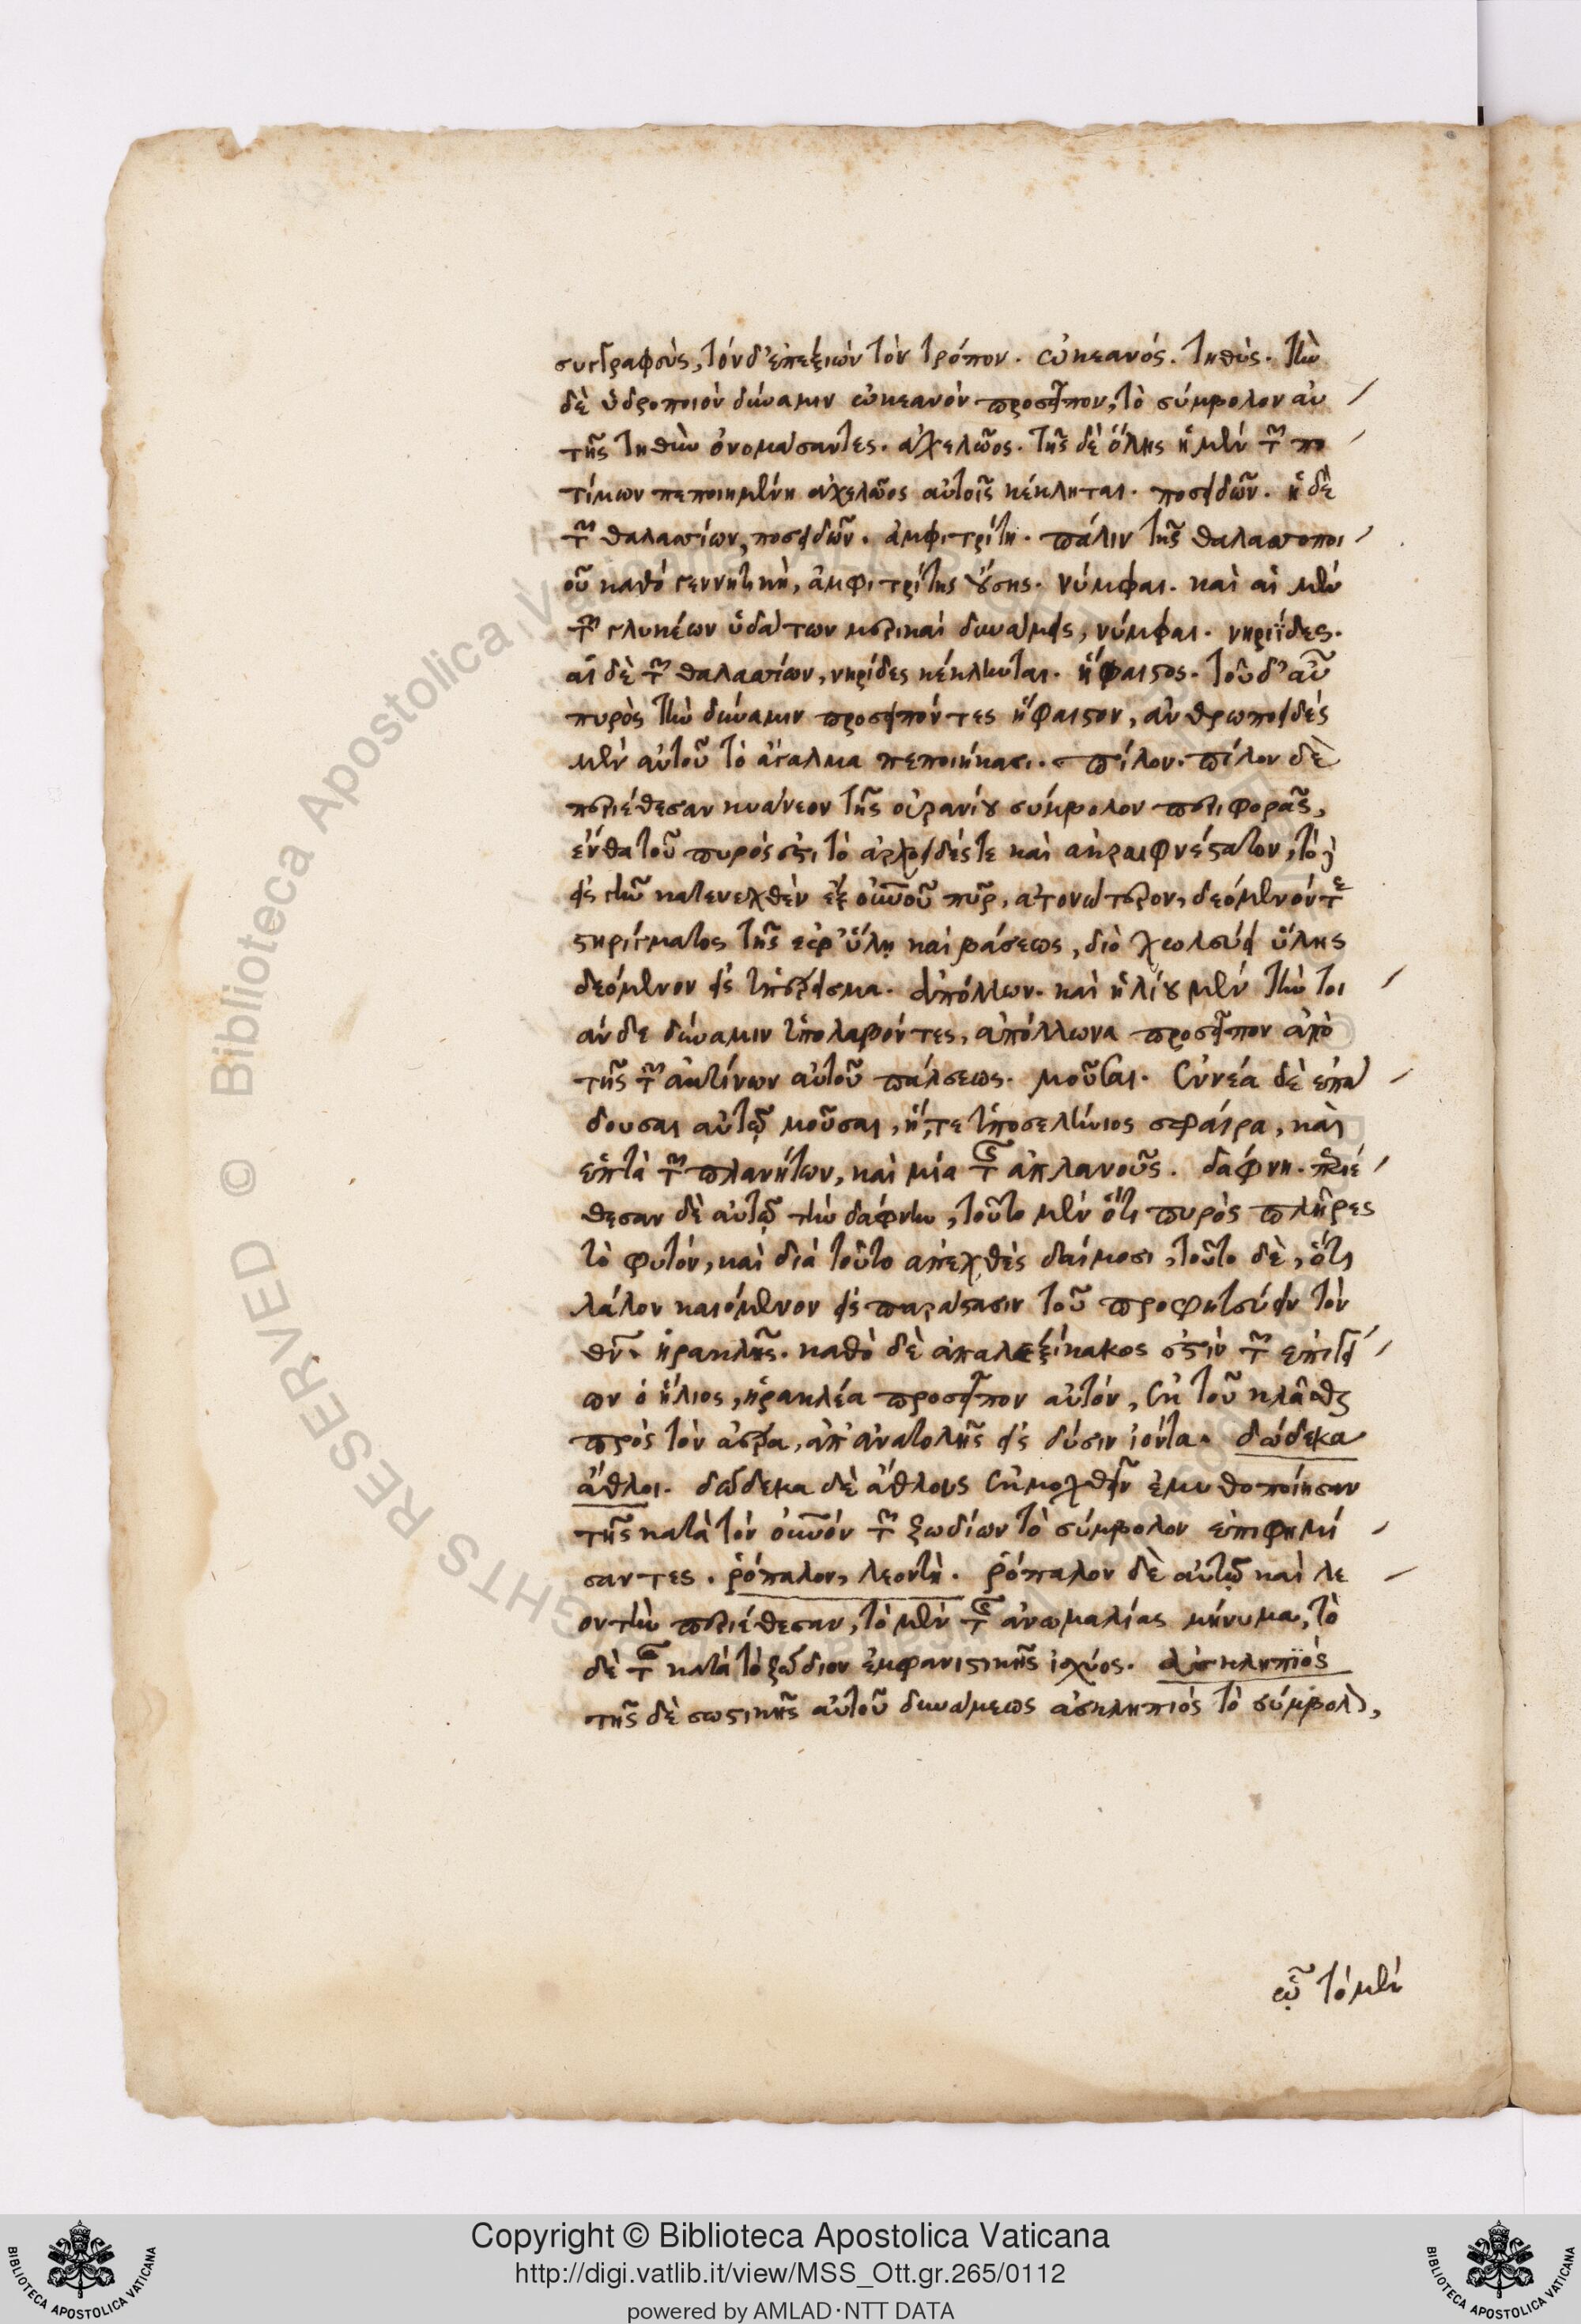 συγγραφεὺς, τόνδ' ἐπεξιὼν τὸν τρόπον. ὠκεανός. τηθύς. τὴν
δὲ ὑδροποιὸν δύναμιν ὠκεανὸν προσεῖπον, τὸ σύμβολον αὐ
τῆς τηθὺν ὀνομάσαντες. ἀχελῶος. τῆς δὲ ὅλης ἡ μὲν τῶν πο
τίμων πεποιημένη ἀχελῶος αὐτοῖς κέκληται. ποσειδῶν. ἡ δὲ
τῶν θαλαττίων, ποσειδῶν. ἀμφιτρίτη. πάλιν τῆς θαλαττοποι
οῦ καθὸ γεννητικὴ, ἀμφιτρίτης οὔσης. νύμφαι. καὶ αἱ μὲν
τῶν γλυκέων ὑδάτων μερικαὶ δυνάμεις, νύμφαι. νηρηΐδες.
αἱ δὲ τῶν θαλαττίων, νηρίδες κέκληνται. ἥφαιστος. τοῦ δ' αὖ
πυρὸς τὴν δύναμιν προσειπόντες ἥφαιστον, ἀνθρωποειδὲς
μὲν αὐτοῦ τὸ ἄγαλμα πεποιήκασι. πῖλον. πῖλον δὲ
περιέθεσαν κυάνεον τῆς οὐρανίου σύμβολον περιφορᾶς,
ἔνθα τοῦ πυρός ἐστι τὸ ἀρχοειδές τε καὶ ἀκραιφνέστατον, τὸ δὲ
εἰς γῆν κατενεχθὲν ἐξ οὐρανοῦ πῦρ, ἀτονώτερον, δεόμενόν τε
στηρίγματος τῆς ἐφ' ὕλῃ καὶ βάσεως, διὸ χωλεύει ὕλης
δεόμενον εἰς ὑπέρεισμα. ἀπόλλων. καὶ ἡλίου μὲν τὴν τοι
άνδε δύναμιν ὑπολαβόντες, ἀπόλλωνα προσεῖπον ἀπὸ
τῆς τῶν ἀκτίνων αὐτοῦ πάλσεως. μοῦσαι. ἐννέα δὲ ἐπᾴ
δουσαι αὐτῷ μοῦσαι, ἥ, τε ὑποσελήνιος σφαῖρα, καὶ
ἑπτὰ τῶν πλανήτων, καὶ μία τῆς ἀπλανοῦς. δάφνη. περιέ
θεσαν δὲ αὐτῷ τὴν δάφνην, τοῦτο μὲν ὅτι πυρὸς πλῆρες
τὸ φυτόν, καὶ διὰ τοῦτο ἀπεχθὲς δαίμοσι, τοῦτο δὲ, ὅτι
λάλον καιόμενον εἰς παράστασιν τοῦ προφητεύειν τὸν
θν. ἡρακλῆς. καθὸ δὲ ἀπαλεξίκακός ἐστιν τῶν ἐπιγεί
ων ὁ ἥλιος, ἡρακλέα προσεῖπον αὐτόν, ἐκ τοῦ κλᾶσθαι
πρὸς τὸν ἀέρα, ἀπ' ἀνατολῆς εἰς δύσιν ἰόντα. δώδεκα
ἆθλοι. δώδεκα δὲ ἄθλους ἐκμοχθεῖν ἐμυθοποίησαν
τῆς κατὰ τὸν οὐρανὸν τῶν ζωδίων τὸ σύμβολον ἐπιφημί
σαντες. ῥόπαλον, λεοντῆ. ῥόπαλον δὲ αὐτῷ καὶ λε
οντῆν περιέθεσαν, τὸ μὲν τῆς ἀνωμαλίας μήνυμα, τὸ
δὲ τῆς κατὰ τὸ ζώδιον ἐμφανιστικῆς ἰσχύος. ἀσκληπιός
τῆς δὲ σωστικῆς αὐτοῦ δυνάμεως ἀσκληπιὸς τὸ σύμβολον,
ᾧ τὸ μὲν
Copyright © Biblioteca Apostolica Vaticana
http://digi.vatlib.it/view/MSS_Ott.gr.265/0112
powered by AMLAD·NTT DATA